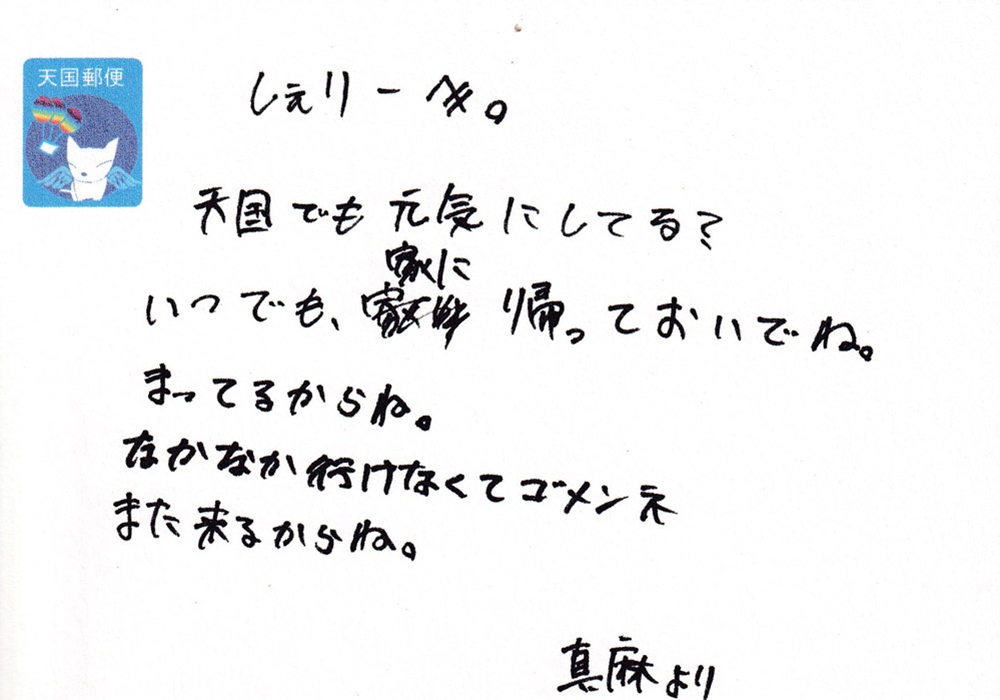 天国郵便
しぇりーへ。
天国でも元気にしてる?
家に
いつでも、帰っておいでね。
まってるからね。
なかなか行けなくてゴメンネ
また来るからね。
真麻より